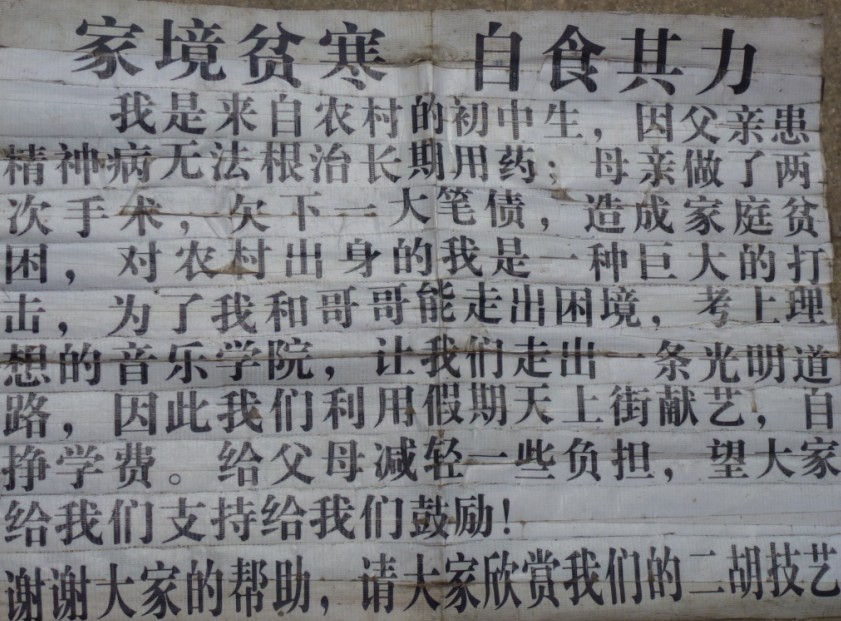 家境贫寒 自食其力
我是来自农村的初中生，因父亲患
精神病无法根治长期用药；母亲做了两
次手术，欠下一大笔债，造成家庭贫
困，对农村出身的我是一种巨大的打
击，为了我和哥哥能走出困境，考上理
想的音乐学院，让我们走出一条光明道
路，因此我们利用假期天上街献艺，自
挣学费。给父母减轻一些负担，望大家
给我们支持给我们鼓励！
谢谢大家的帮助，请大家欣赏我们的二胡技艺